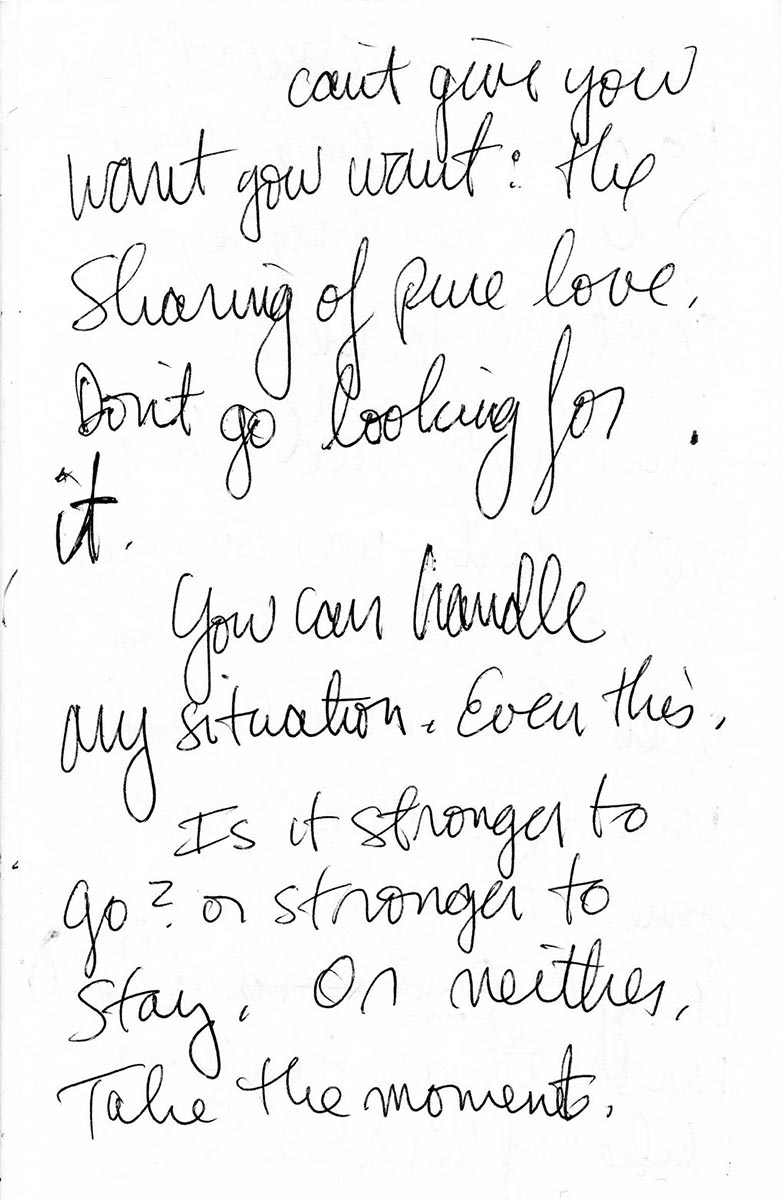 can't give you
want you want: the
Sharing of pure love.
Don't go looking for
it.
You can handle
any situation. Even this.
Is it stronger to
go? or stronger to
stay. Or neither.
Take the moment.